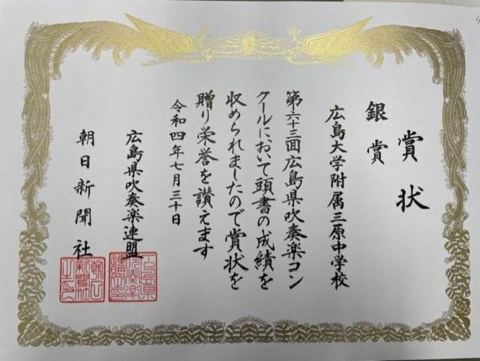 賞状
銀賞
広島大学附属三原中学校
第六十三回広島県吹奏楽コン
クールにおいて頭書の成績を
収められましたので賞状を
贈り栄誉を讃えます
令和四年七月三十日
広島県吹奏楽連盟
朝日新聞社